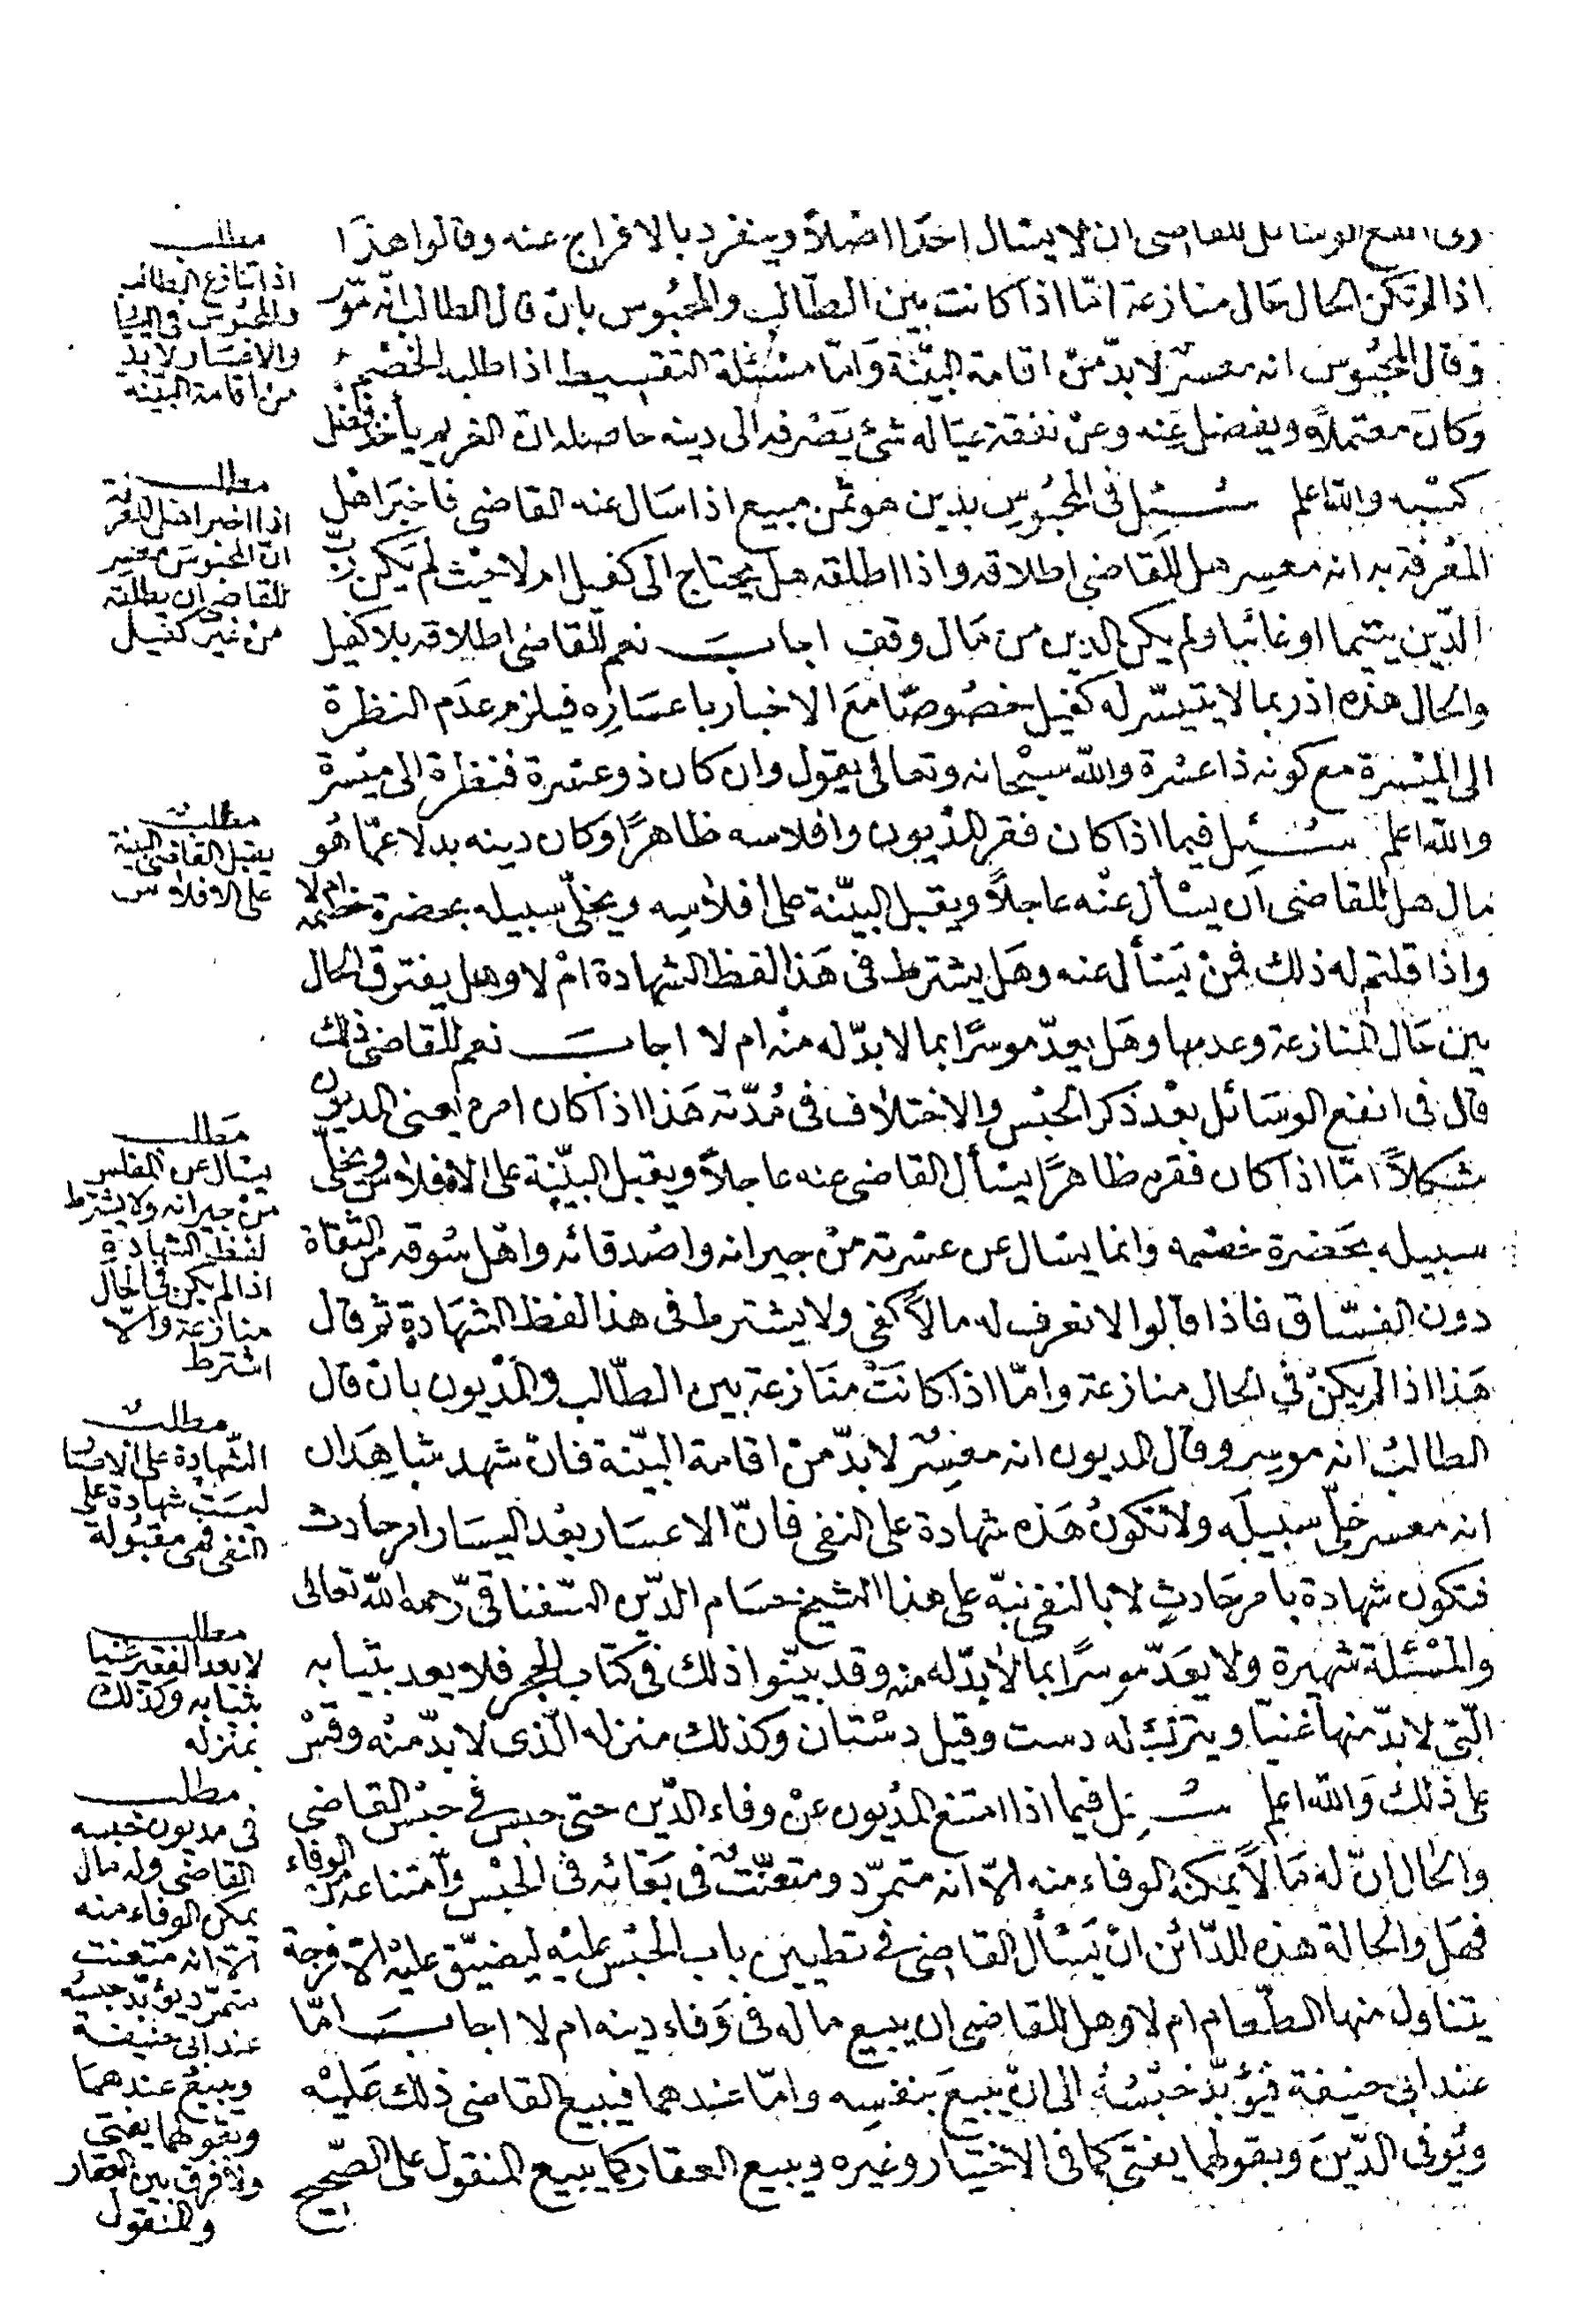 وفى انفع الوسائل للقاضى ان لا يسال احدا اصلا وينفرد بالافراج عنه وقالوا هذا
اذا لم تكن الحال حال منازعة امّا اذا كانت بين الطالب والمحبوس بان قال الطالب انّه موسر
وقال المحبوس انه معسر لا بدّ من اقامة البيّنة وامّا مسئلة التقسيط اذا طلبه الخصم
وكان معتملا ويفضل عنه وعن نفقة عياله شئ يصرفه الى دينه حاصله ان الغريم يأخذ فضل
كسبه والله اعلم سئل فى المحبوس بدين هو ثمن مبيع اذا سال عنه القاضى فاخبر اهل
المعرفة به انه معسر هل للقاضى اطلاقه واذا اطلقه هل يحتاج الى كفيل ام لا حيث لم يكن ربّ
الدّين يتيما او غائبا ولم يكن الدين من مال وقف اجاب نعم للقاضى اطلاقه بلا كفيل
والحال هذه اذ ربما لا يتيسّر له كفيل خصوصًا مع الاخبار باعساره فيلزم عدم النظرة
الى الميسرة مع كونه ذا عسرة والله سبحانه وتعالى يقول وان كان ذو عسرة فنظرة الى ميسرة
والله اعلم سئل فيما اذا كان فقر المديون وافلاسه ظاهرًا وكان دينه بدلا عمّا هو
مال هل للقاضى ان يسأل عنه عاجلاً ويقبل البيّنة على افلاسه ويخلّى سبيله بحضرة خصمه ام لا
واذا قلتم له ذلك فمن يسأل عنه وهل يشترط فى هذا لفظ الشهادة ام لا وهل يفترق الحال
بين حال المنازعة وعدمها وهل يعدّ موسرًا بما لا بدّ له منه ام لا اجاب نعم للقاضى ذلك
قال فى انفع الوسائل بعد ذكر الحبس والاختلاف فى مدّته هذا اذا كان امره يعنى المديون
مشكلاً امّا اذا كان فقره ظاهرًا يسأل القاضى عنه عاجلاً ويقبل البيّنة على الافلاس ويخلّى
سبيله بحضرة خصمه وانما يسال عن عسرته من جيرانه واصدقائه واهل سوقه من الثقاة
دون الفسّاق فاذا قالوا لا نعرف له مالاً كفى ولا يشترط فى هذا لفظ الشهادة ثم قال
هذا اذا لم يكن فى الحال منازعة وامّا اذا كانت منازعة بين الطّالب والمديون بان قال
الطالب انه موسر وقال المديون انه معسر لا بدّ من اقامة البيّنة فان شهد شاهدان
انه معسر خلّى سبيله ولا تكون هذه شهادة على النفى فانّ الاعسار بعد اليسار امر حادث
فتكون شهادة بامر حادث لا بالنفى نبّه على هذا الشيخ حسام الدّين السّغناقىّ رحمه الله تعالى
والمسئلة شهيرة ولا يعدّ موسرًا بما لا بدّ له منه وقد بيّنوا ذلك فى كتاب الحجر فلا يعد بثيابه
الّتى لا بدّ منها غنيّا ويترك له دست وقيل دستان وكذلك منزله الّذى لا بدّ منه وقس
على ذلك والله اعلم سئل فيما اذا امتنع المديون عن وفاء الدّين حتى حبس فى حبس القاضى
والحال انّ له مالاً يمكنه الوفاء منه الاّ انه متمرّد ومتعنّت فى بقائه فى الحبس وامتناعه من الوفاء
فهل والحالة هذه للدّائن ان يسأل القاضى فى تطيين باب الحبس عليه ليضيّق عليه الاّ فرجة
يتناول منها الطّعام ام لا وهل للقاضى ان يبيع ماله فى وفاء دينه ام لا اجاب امّا
عند ابى حنيفة فيؤبّد حبسه الى ان يبيع بنفسه وامّا عندهما فيبيع القاضى ذلك عليه
ويوفى الدّين وبقولهما يفتى كما فى الاختيار وغيره ويبيع العقار كما يبيع المنقول على الصّحيح
مطلب
اذا تنازع الطالب
والمحبوس فى اليسار
والاعسار لا بدّ
من اقامة البيّنة
مطلب
اذا اخبر اهل المعرفة
انّ المحبوس معسر
للقاضى ان يطلقه
من غير كفيل
مطلب
يقبل القاضى البينة
على الافلاس
مطلب
يسال عن المفلس
من جيرانه ولا يشترط
لفظ الشهادة
اذا لم يكن فى الحال
منازعة والاّ
اشترط
مطلب
الشّهادة على الاعسار
ليست شهادة على
النفى فهى مقبولة
مطلب
لا يعد الفقير غنيا
بثيابه وكذلك
بمنزله
مطلب
فى مديون حبسه
القاضى وله مال
يمكن الوفاء منه
الاّ انه متعنت
متمرّد يؤبّد حبسه
عند ابى حنيفة
ويبيع عندهما
وبقولهما يفتى
ولا فرق بين العقار
والمنقول